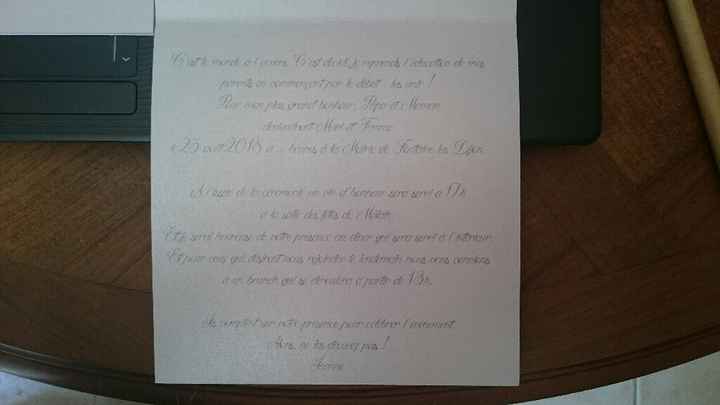 C'est le monde à l'envers C'est décidé, je reprends l'éducation de mes
parents en commençant par le début : les unir !
Pour mon plus grand bonheur, Papa et Maman
deviendront Mari et Femme
le 25 août 2018 à heures à la Mairie de Fontaine les Dijon
A l'issue de la cérémonie un vin d'honneur sera servi à 17h
à la salle des fêtes de
Et je serai heureuse de votre présence au dîner qui sera servi à l'intérieur
Et pour ceux qui désirent nous rejoindre le lendemain nous vous convions
à un brunch qui se déroulera à partir de 13h.
Ils comptent sur votre présence pour célébrer l'événement
Alors, ne les décevez pas !